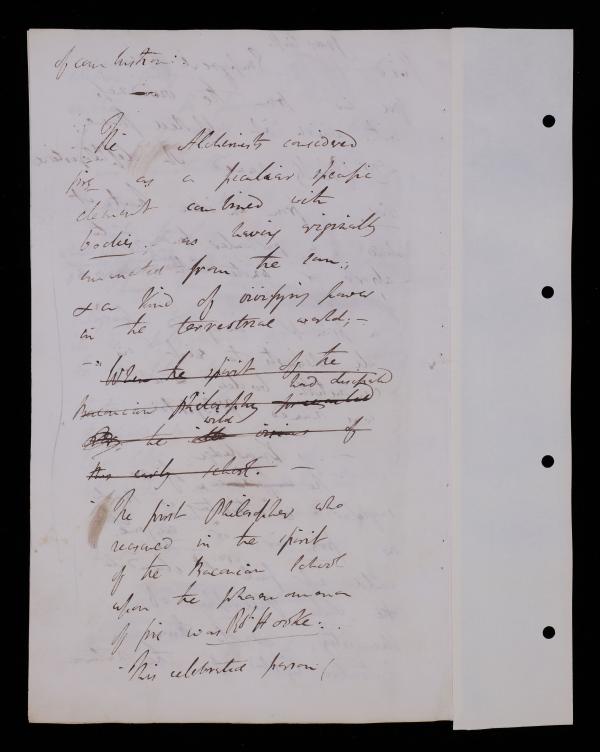 of combustion:
The Alchemists considered
fire as a peculiar specific
element combined with
bodies. as having originally
emanated from the sun.;
& a kind of vivifying power
in the terrestrial world; –
– When the spirit of the
had dissipated
Baconian philosophy
wild
the visions of
this early school. –
The first Philosopher who
reasoned in the spirit
of the Baconian School
upon the phaenomena
of fire was Rt Hooke:.
– This celebrated person (